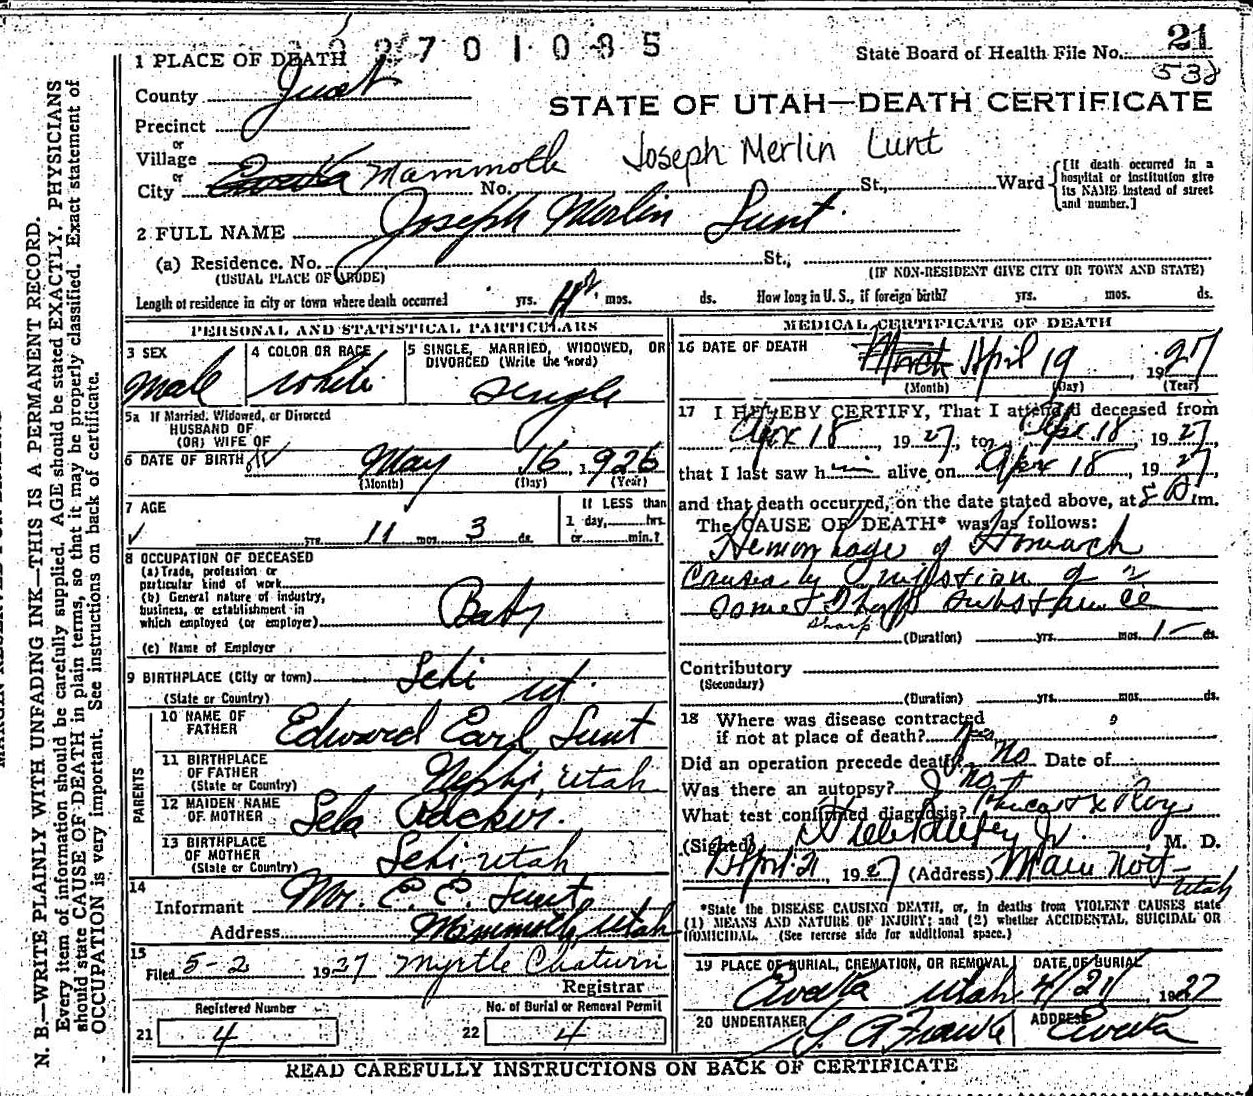 2701085
State Board of Health File No. 21
538
1 PLACE OF DEATH
County Juab
STATE OF UTAH—DEATH CERTIFICATE
Precinct
or
Village
or
City Eureka Mammoth No. St., Ward
Joseph Merlin Lunt
[If death occurred in a hospital or institution give its NAME instead of street and number.]
2 FULL NAME Joseph Merlin Lunt
(a) Residence. No. St.,
(USUAL PLACE OF ABODE) (IF NON-RESIDENT GIVE CITY OR TOWN AND STATE)
Length of residence in city or town where death occurred yrs. mos. ds. How long in U. S., if foreign birth? yrs. mos. ds.
PERSONAL AND STATISTICAL PARTICULARS
3 SEX Male
4 COLOR OR RACE White
5 SINGLE, MARRIED, WIDOWED, OR DIVORCED (Write the word) Single
5a If Married, Widowed, or Divorced
HUSBAND OF
(OR) WIFE OF
6 DATE OF BIRTH May 16, 1926
(Month) (Day) (Year)
7 AGE yrs. 11 mos. 3 ds.
If LESS than
1 day, hrs.
or min.?
8 OCCUPATION OF DECEASED
(a) Trade, profession or
particular kind of work
(b) General nature of industry,
business, or establishment in
which employed (or employer) Baby
(c) Name of Employer
9 BIRTHPLACE (City or town) Lehi
(State or Country) Ut.
PARENTS
10 NAME OF FATHER Edward Earl Lunt
11 BIRTHPLACE OF FATHER (State or Country) Nephi, Utah
12 MAIDEN NAME OF MOTHER Lela
13 BIRTHPLACE OF MOTHER (State or Country) Lehi, Utah
14
Informant Mr. E. E. Lunt
Address Mammoth, Utah
15
Filed 5-2 1927 Myrtle Chatwin
Registrar
Registered Number
21 4
No. of Burial or Removal Permit
22 4
MEDICAL CERTIFICATE OF DEATH
16 DATE OF DEATH March April 19, 1927
(Month) (Day) (Year)
17 I HEREBY CERTIFY, That I attended deceased from
Apr 18, 1927, to Apr. 18, 1927
that I last saw him alive on Apr 18, 1927
and that death occurred, on the date stated above, at 8 A.m.
The CAUSE OF DEATH* was as follows:
Hemorrhage of Stomach
Caused by Injestion of a
Some Sharp Substance
Sharp
(Duration) yrs. mos. 1 ds.
Contributory
(Secondary)
(Duration) yrs. mos. ds.
18 Where was disease contracted
if not at place of death?
Did an operation precede death? No Date of
Was there an autopsy? No
What test confirmed diagnosis? X Ray
(Signed) M. D.
April 21, 1927 (Address)
Utah
*State the DISEASE CAUSING DEATH, or, in deaths from VIOLENT CAUSES state
(1) MEANS AND NATURE OF INJURY; and (2) whether ACCIDENTAL, SUICIDAL OR
HOMICIDAL. (See reverse side for additional space.)
19 PLACE OF BURIAL, CREMATION, OR REMOVAL Eureka Utah
DATE OF BURIAL 4/21, 1927
20 UNDERTAKER
ADDRESS Eureka
READ CAREFULLY INSTRUCTIONS ON BACK OF CERTIFICATE
N. B.—WRITE PLAINLY WITH UNFADING INK—THIS IS A PERMANENT RECORD.
Every item of information should be carefully supplied. AGE should be stated EXACTLY. PHYSICIANS
should state CAUSE OF DEATH in plain terms, so that it may be properly classified. Exact statement of
OCCUPATION is very important. See instructions on back of certificate.